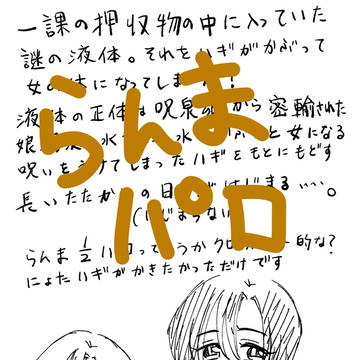 一課の押収物の中に入っていた
謎の液体。それをハギがかぶって
女の になってしま !
液体の正体は呪泉 から密輸された
娘 水 水 と女になる
呪い けてしまったハギをもとにもどす
長いたたか の日 はじまる…。
(はじまらない)
らんま1/2パロって うかクロ 的な?
にょたハギがかきたかっただけです
らんま
パロ